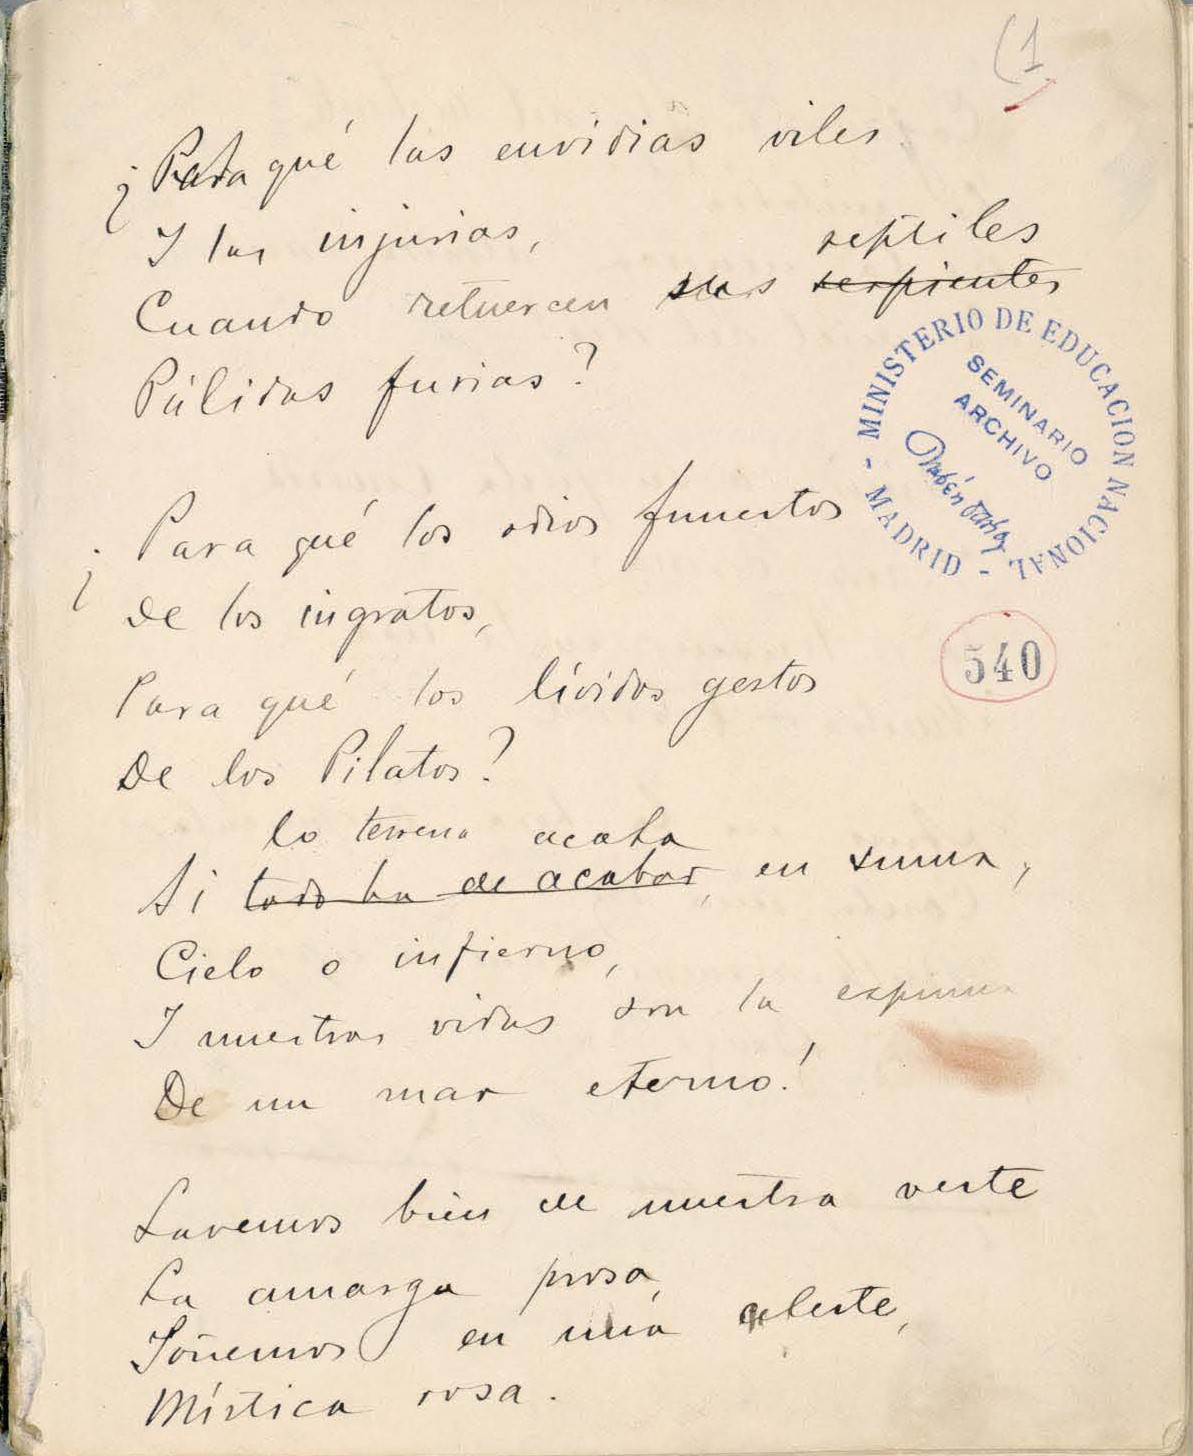 (1
¿Para qué las envidias viles
I las injurias,
reptiles
Cuando retuercen sus serpientes
Pálidas furias?
¿Para qué los odios funestos
De los ingratos,
Para qué los lívidos gestos
De los Pilatos?
lo terreno acaba
Si todo ha de acabar, en suma,
Cielo o infierno,
I nuestras vidas son la espuma
De un mar eterno!
Lavemos bien de nuestra veste
La amarga prosa,
Soñemos en una celeste,
Mística rosa.
MINISTERIO DE EDUCACION NACIONAL - MADRID -
SEMINARIO
ARCHIVO
Rubén Darío
540